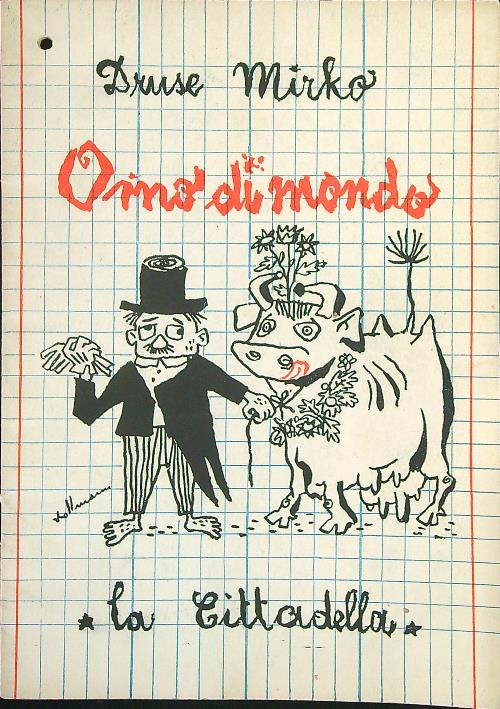 Druse Mirko
Omo di mondo
* la Cittadella *